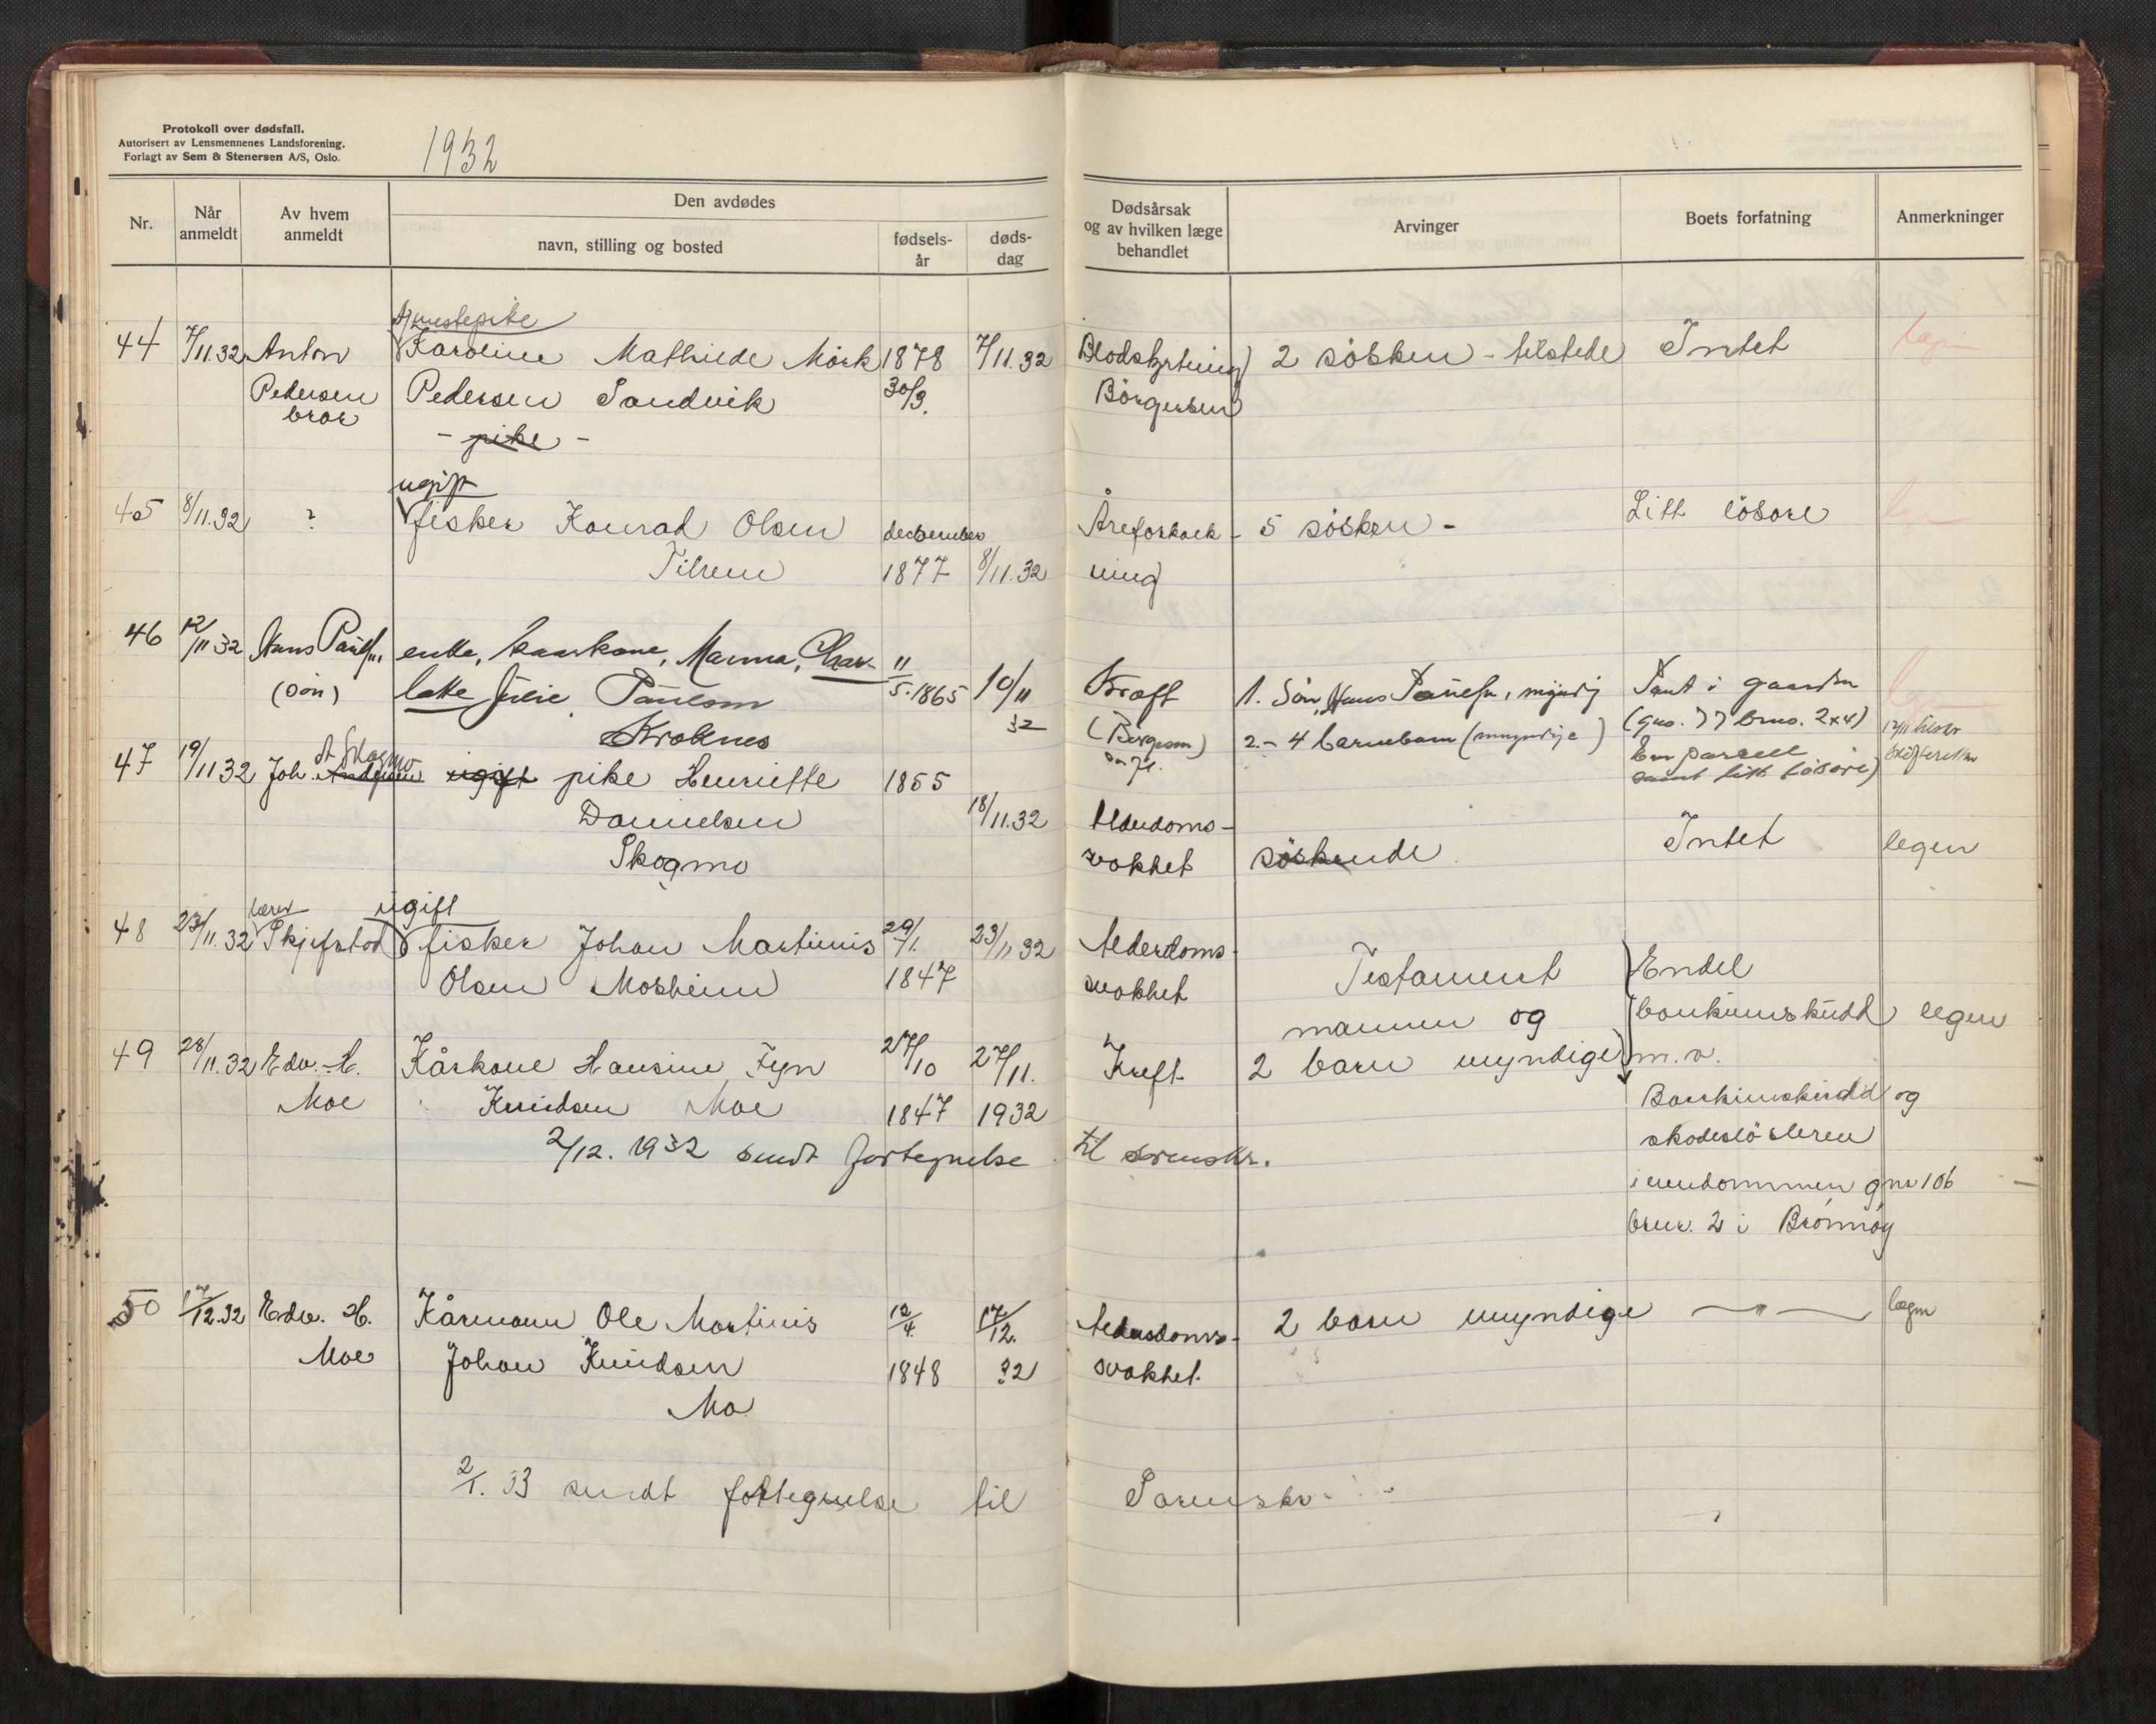 Protokoll over dødsfall.
Autorisert av Lensmennenes Landsforening.
Forlagt av Sem & Stenersen A/S, Oslo.
1932
Nr.
Når anmeldt
Av hvem anmeldt
Den avdødes
navn, stilling og bosted
fødsels-år
døds-dag
Dødsårsak og av hvilken læge behandlet
Arvinger
Boets forfatning
Anmerkninger
tjenestepike
44 7/11.32 Anton Karoline Mathilde Mörk 1878 7/11.32 Blodstyrtning 2 søsken - tilstede Intet legen
Pedersen Pedersen Sandvik 30/9. Börgersen
bror - pike -
ugift
45 8/11.32 ? fisker Konrad Olsen december Åreforkalk- 5 søsken - Litt løsøre
Tilrem 1877 8/11.32 ning
46 12/11 32 Hans Paulsen enke, kaarkone, Marina, Char- 11/5.1865 10/11 Kræft 1. Søn, Hans Paulsen, myndig Pant i gaarden
(søn) lotte Julie Paulsen 32 (Børgersen) 2.- 4 barnebarn (umyndige) (gno. 77 brno. 2 & 4)
Kroknes En parsell
samt litt løsøre)
47 19/11 32 Joh. Andersen A. Skogmo ugift pike Henriette 1855
Danielsen 18/11.32 Alderdoms-
Skogmo svakhet søskende Intet legen
lærer ugift
48 23/11.32 Skjefstad fisker Johan Martinus 29/1. 23/11 32 Alderdoms-
Olsen Mosheim 1847 svakhet Testament Endel
mannen og bankinnskudd legen
49 28/11.32 Edv. H. Kårkone Hansine Fyn 27/10 27/11. Kreft 2 barn myndige m.v.
Moe Knudsen Moe 1847 1932 Bankinnskudd og
2/12. 1932 sendt fortegnelse til sorenskr. skadesløsbrev
i eiendommen gnr 106
brnr. 2 i Brønnøy
50 17/12.32 Edv. H. Kårmann Ole Martinus 12/4 17/12. Alderdoms- 2 barn myndige — " — legen
Moe Johan Knudsen 1848 32 svakhet.
Mo
2/1. 33 sendt fortegnelse til Sorenskr.